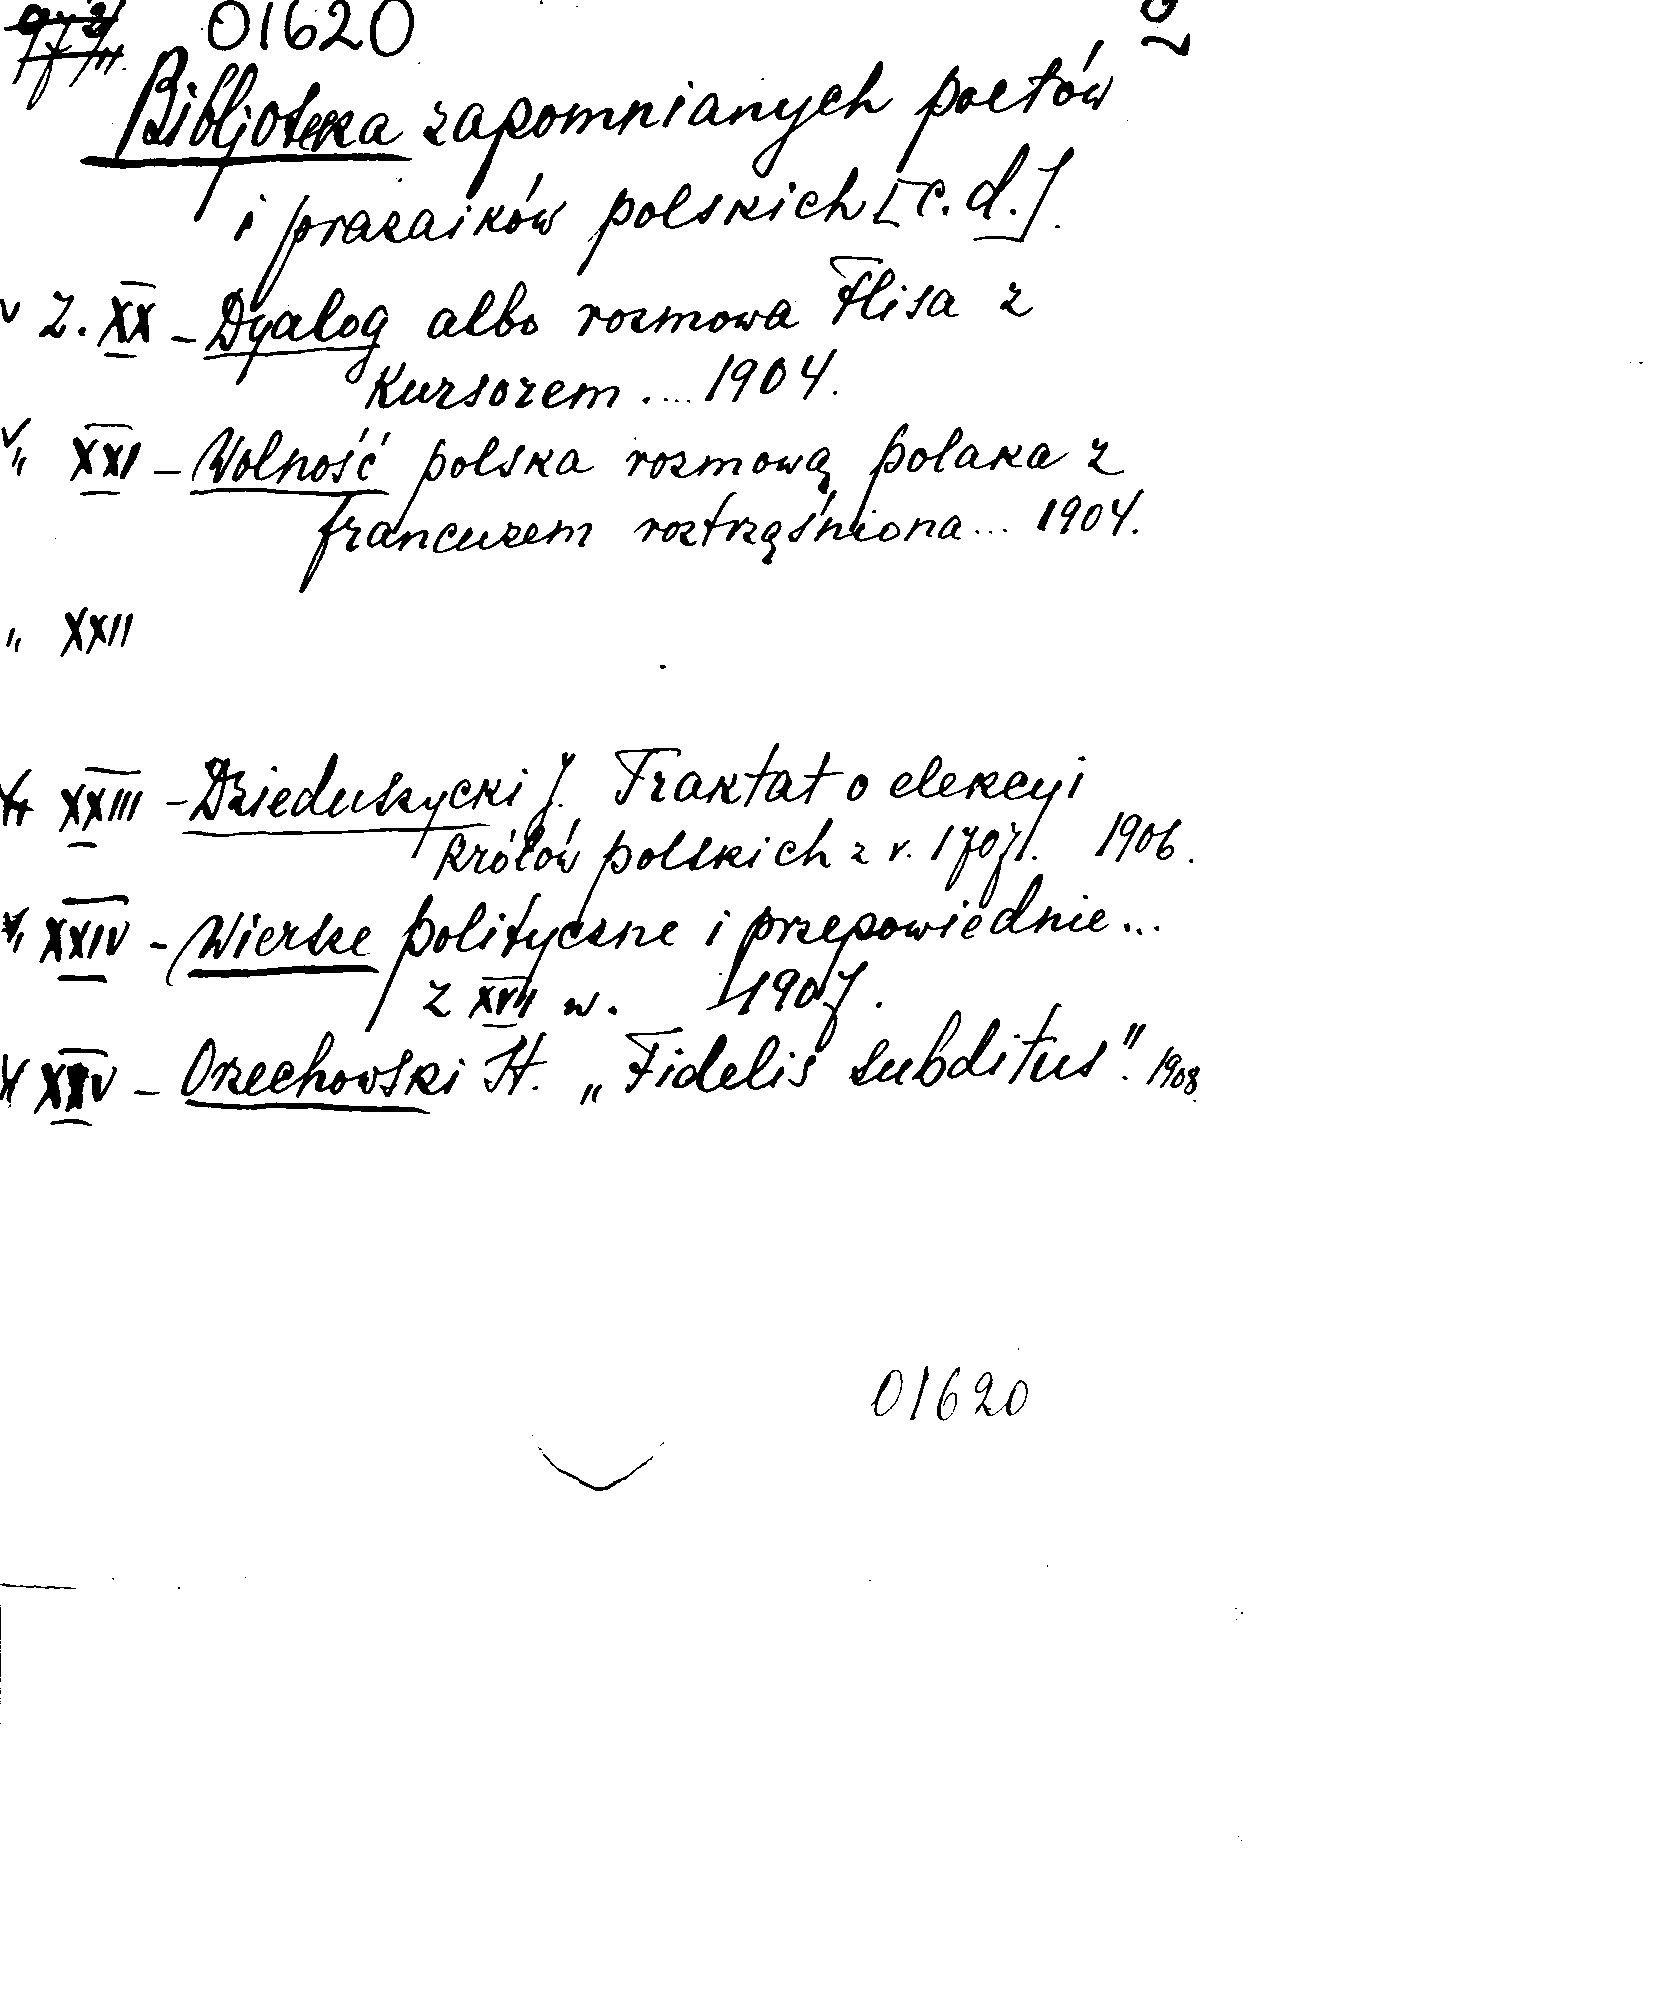 01620
Bibljoteka zapomnianych poetów
i prozaików polskich [c.d.].
Z. XX - Dyalog albo rozmowa Flisa z
Kursorem .... 1904.
„ XXI - Wolność polska rozmową polaka z
francuzem roztrząśniona... 1904.
„ XXII
„ XXIII - Dzieduszycki J. Traktat o elekcyi
królów polskich z r. 1707. 1906.
„ XXIV - Wiersze polityczne i przepowiednie...
z XVII w. 1907.
XXV - Orzechowski St. „Fidelis subditus". 1908.
01620